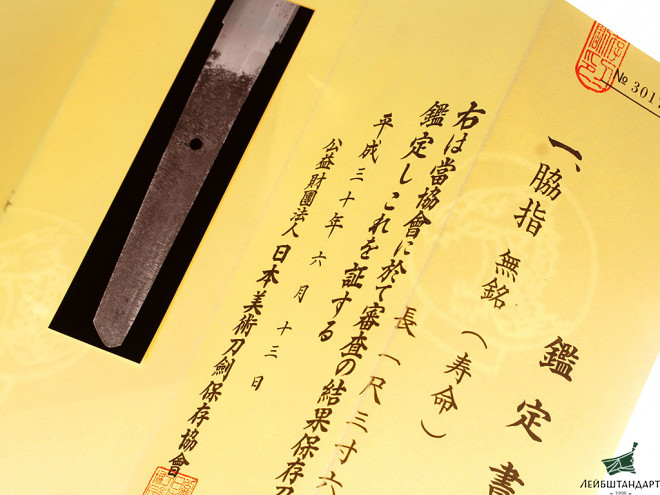 № 301
鑑定書
一、脇指 無銘(寿命)
長一尺三寸六
右は當協會に於て審査の結果保存刀
鑑定しこれを証する
平成三十年六月十三日
公益財團法人 日本美術刀劍保存協會
ЛЕЙБШТАНДАРТ
1998